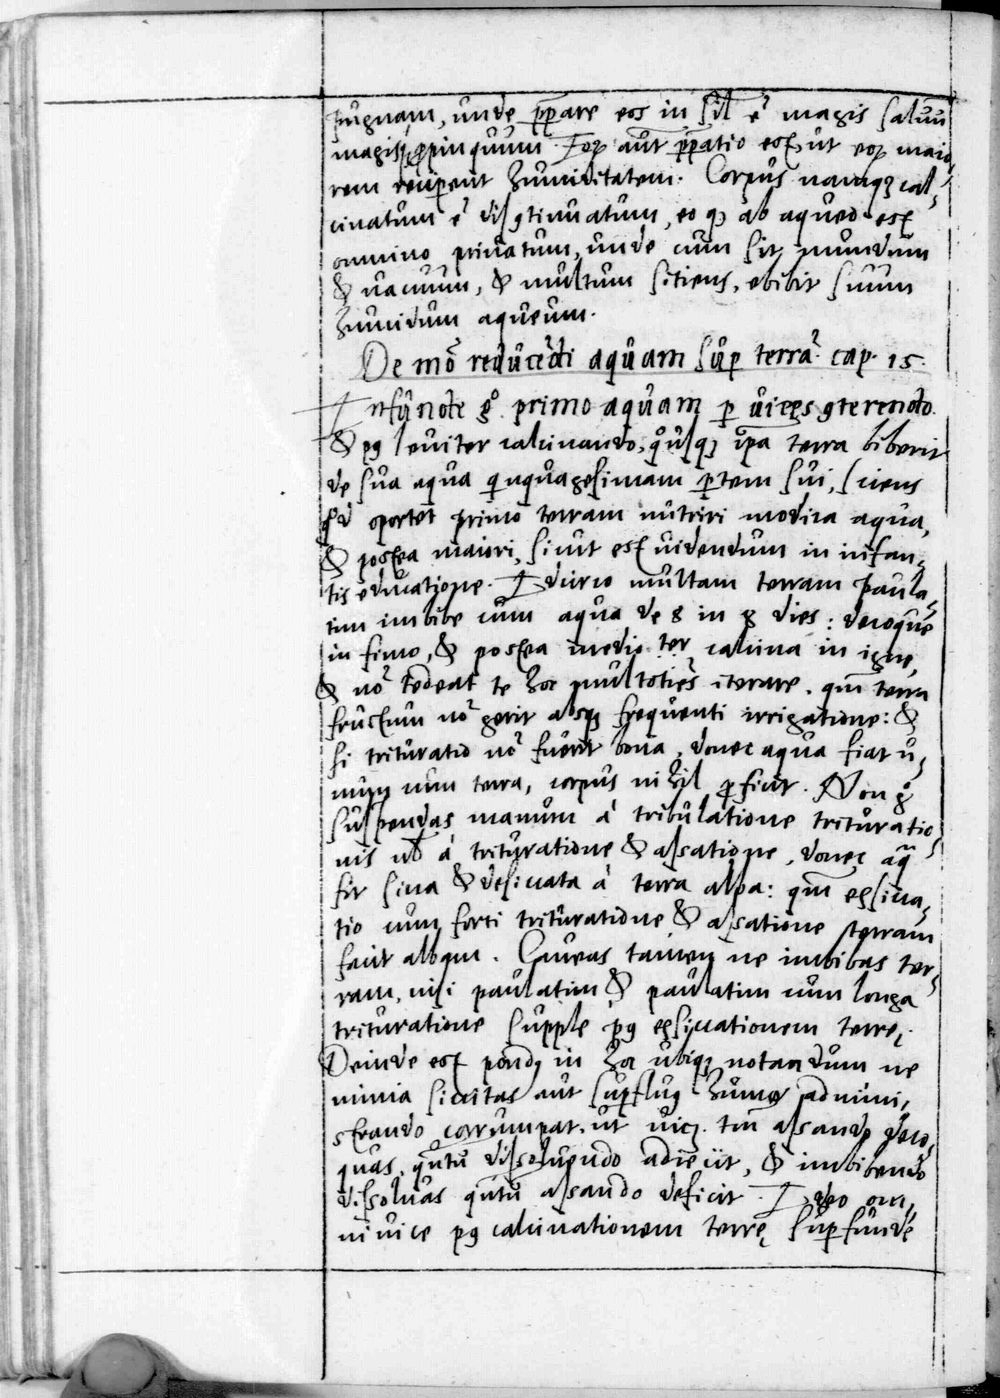 pugnam, unde p̄pare eos in sil̄ ē magis salvū
magisq; ꝓpinquum. Eoꝝ aūt p̄patio est, ut eoꝝ maio
rem recipeūt humiditatem. Corpus namq; cal-
cinatum ē disꝯtinuatum, eo ꝙ ab aqueo est
omnino privatum, unde cum sit mundum
& vacuum, & multum sitiens, ebibit suum
humidum aqueum.
De mō reducēdi aquam sup̄ terrā. cap. 15.
Infūnde gͦ primo aquam p̱ vices ꝯterendo.
& pꝰ leviter calcinando, qͦusq; ip̄a terra biberit
de sua aqua quinquagesimam p̱tem sui, sciens
qd oportet primo terram nutriri modica aqua,
& postea maiori, sicut est videndum in infan-
tis educatione. Idcirco multam terram paula-
tim imbibe cum aqua de 8 in 8 dies: decoque
in fimo, & postea medio ter calcina in igne,
& nō tedeat te hoc multotiēs iterare. qm̄ terra
fructum nō gerit absq; frequenti irrigatione: &
si trituratio nō fuerit bona, donec aqua fiat u-
num cum terra, corpus nihil ꝓficit. Non gͦ
suspendas manum à tribulatione trituratio-
nis à trituratione & assatione, donec aq̄
sit sicca & desiccata à terra alba: qm̄ exsicca-
tio cum forti trituratione & assatione terram
facit albam. Caveas tamen ne imbibas ter-
ram, nisi paulatim & paulatim cum longa
trituratione supple pꝰ exsiccationem terrę.
Deinde est pondꝰ in hoc ubiq; notandum ne
nimia siccitas aut sup̱fluꝰ humor admini-
strando corrumpat. ut vicꝫ. tm̄ assando deco-
quas, qntū dissolvendo adiecit, & imbibendo
dissolvas qntū assando deficit. Ideo om-
ni vice pꝰ calcinationem terrę sup̱funde